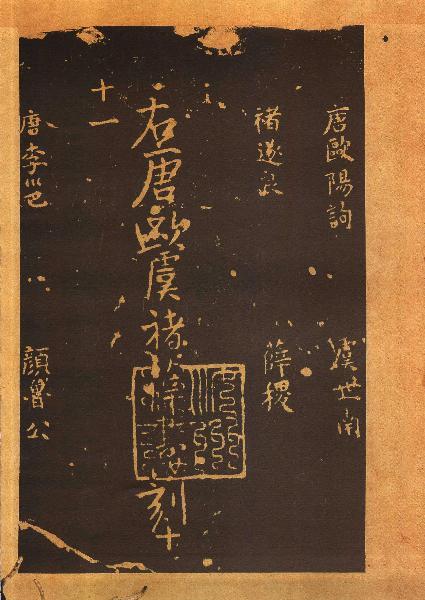 唐歐陽詢 虞世南
褚遂良 薛稷
右唐歐虞褚薛刻十
十一
唐李邕 顏魯公